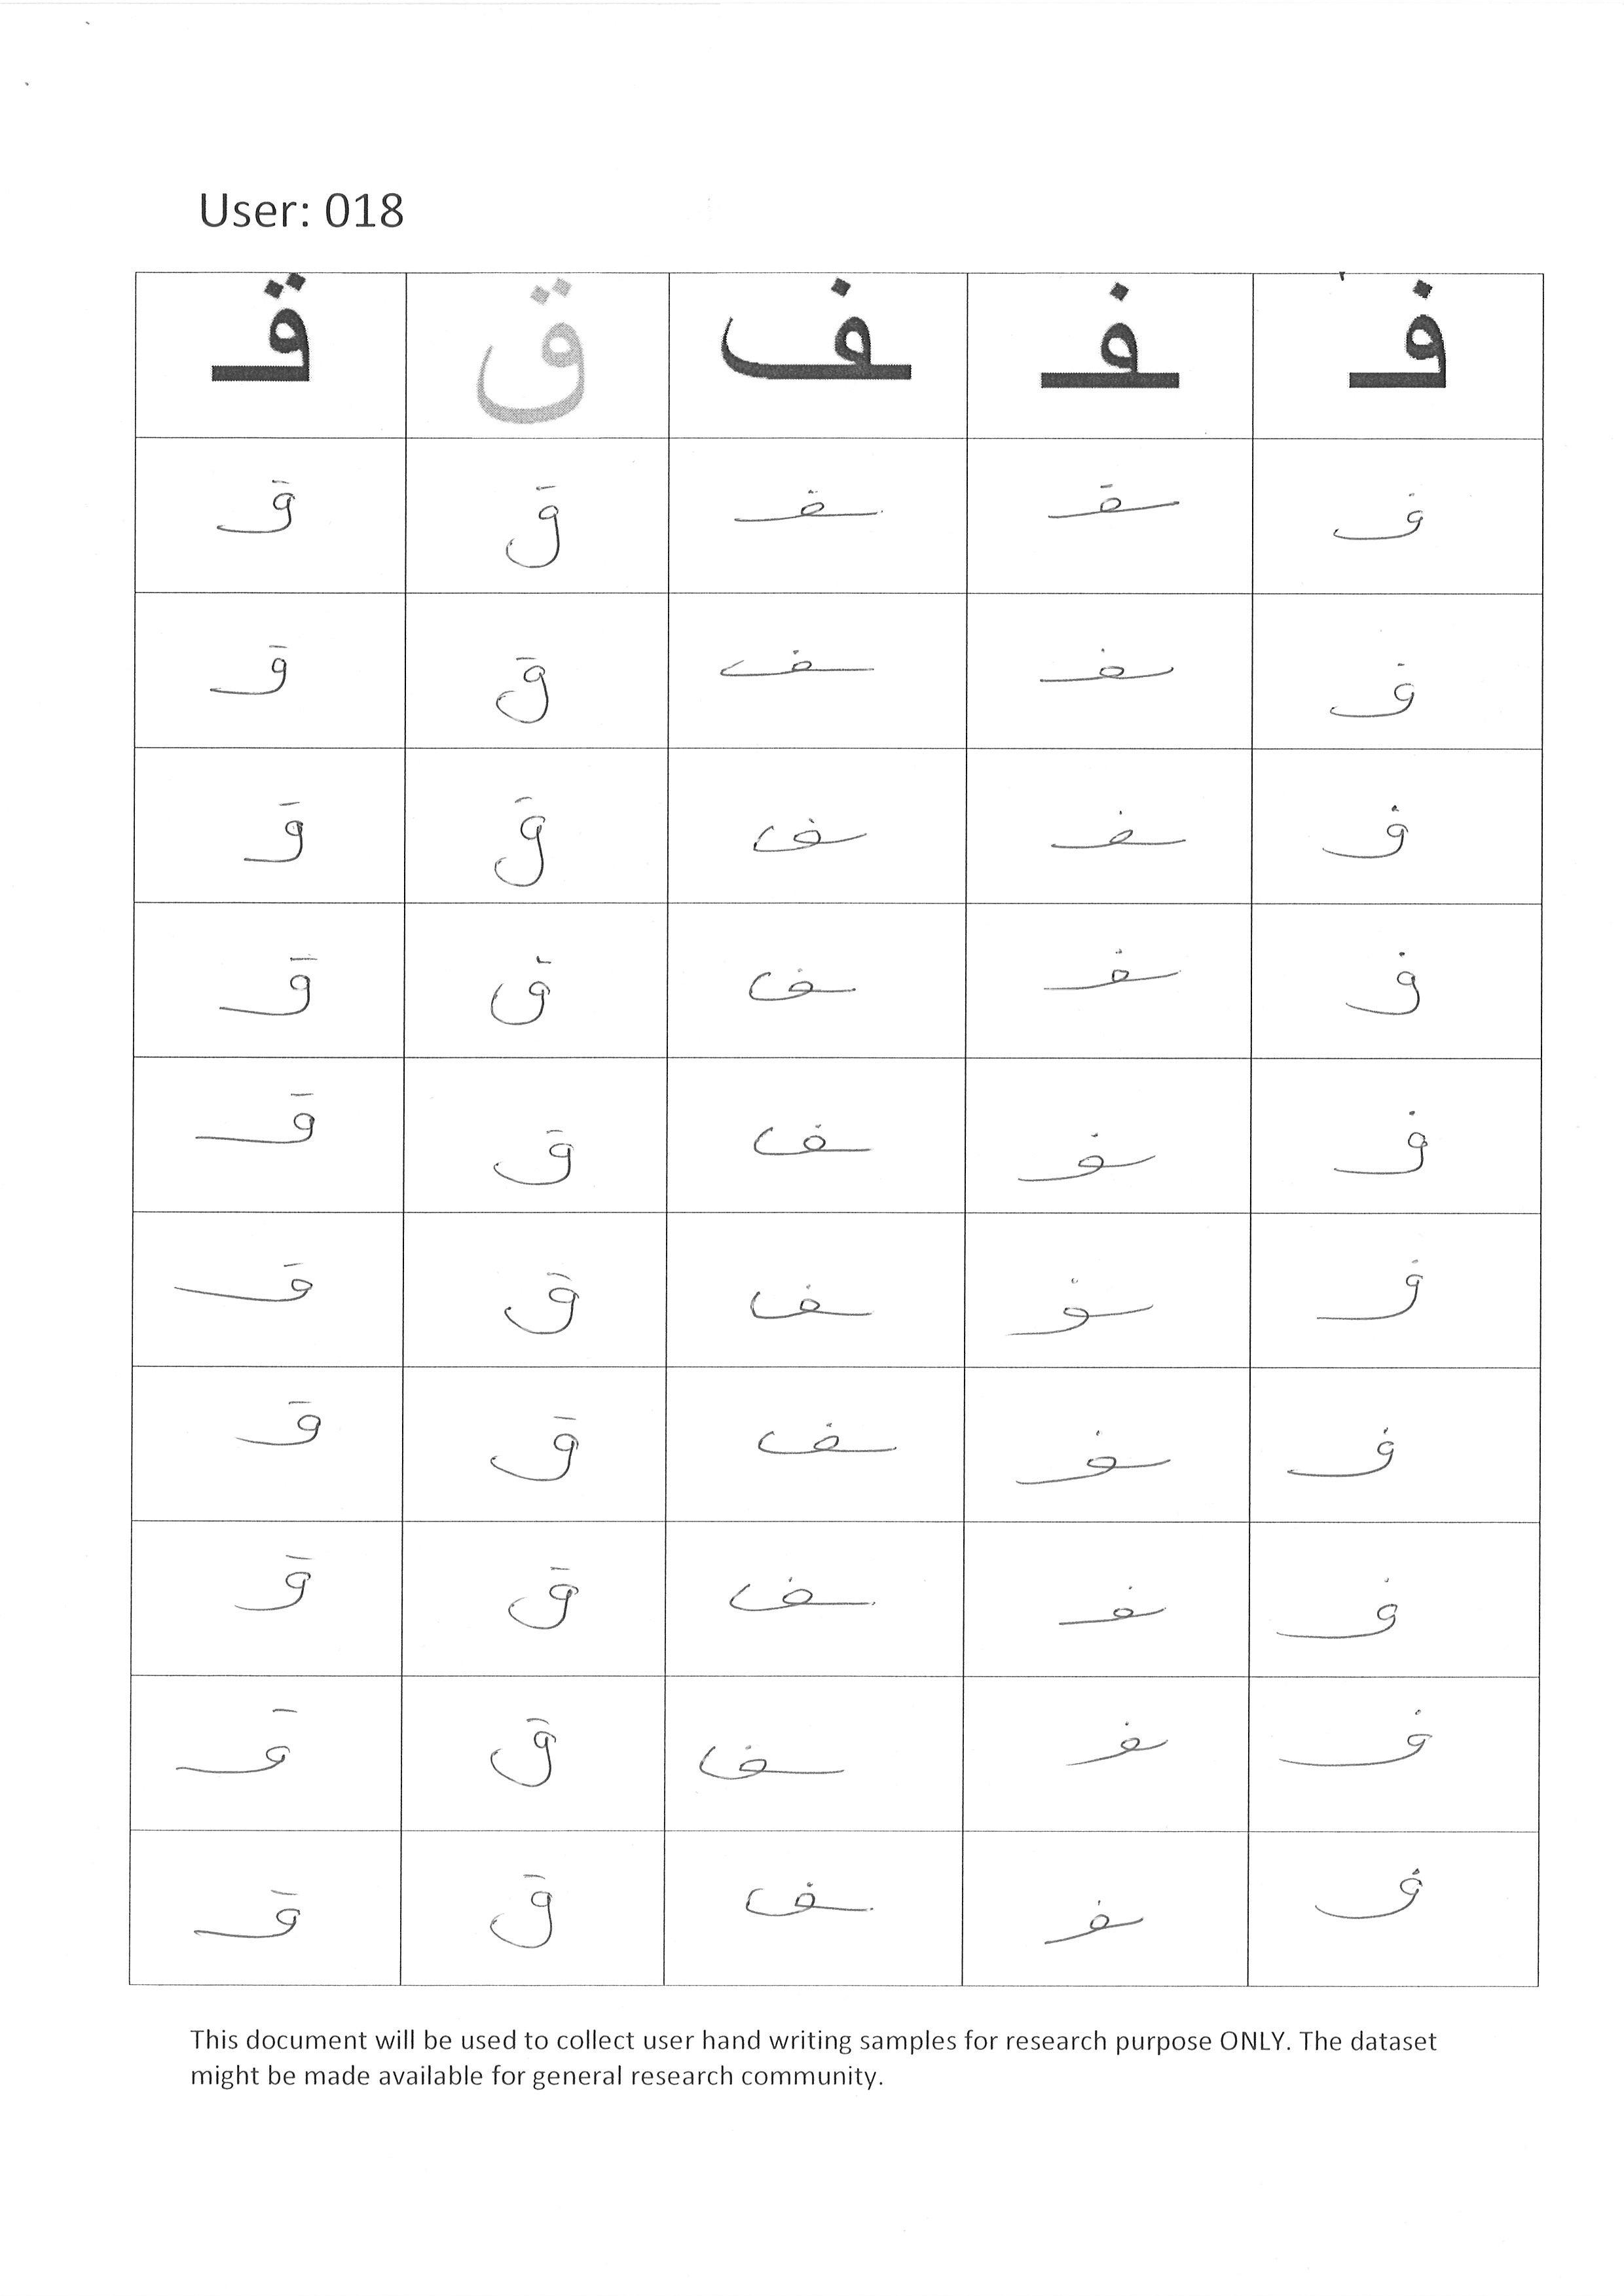 User: 018
فـ ـفـ ـف ق قـ
فـ ـقـ ـفـ ق قـ
فـ ـفـ ـف ق قـ
فـ ـفـ ـف ق قـ
فـ ـفـ ـف ق قـ
فـ ـفـ ـف ق قـ
فـ ـفـ ـف ق قـ
فـ ـفـ ـف ق قـ
فـ ـفـ ـف ق قـ
فـ ـفـ ـف ق قـ
فـ ـفـ ـف ق قـ
This document will be used to collect user hand writing samples for research purpose ONLY. The dataset
might be made available for general research community.